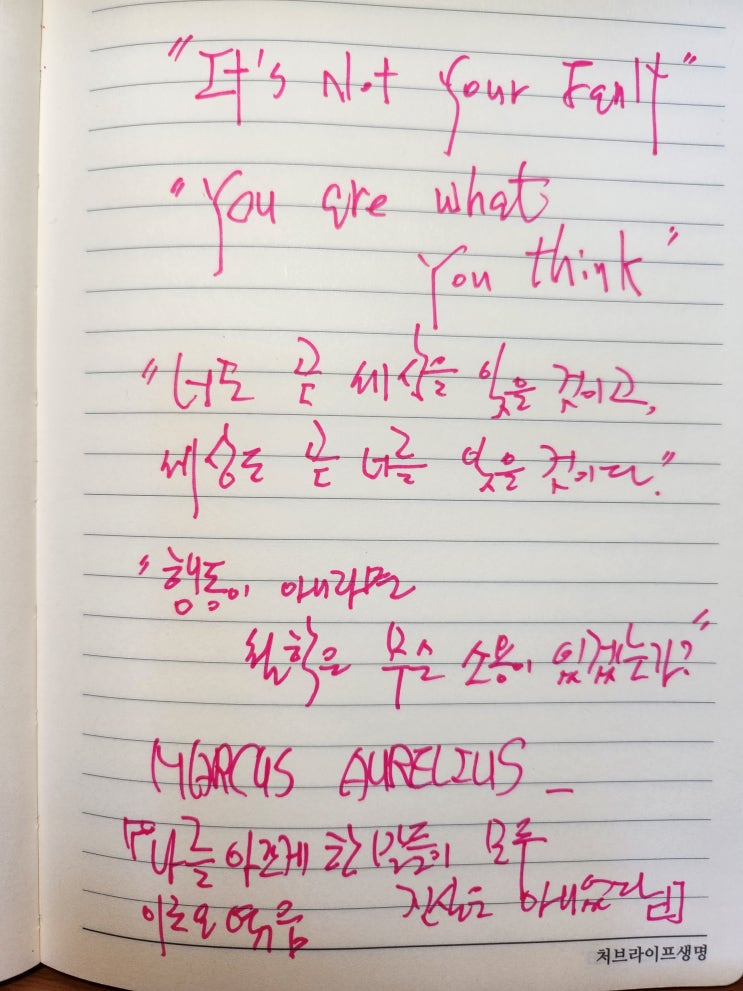 "It's Not Your Fault"
"You are what
You think"
"너도 곧 세상을 잊을 것이고,
세상도 곧 너를 잊을 것이다."
"행동이 아니라면
철학은 무슨 소용이 있겠는가?"
MARCUS AURELIUS _
『나를 아프게 한 말들이 모두
진실은 아니었다
이로운 엮음
처브라이프생명